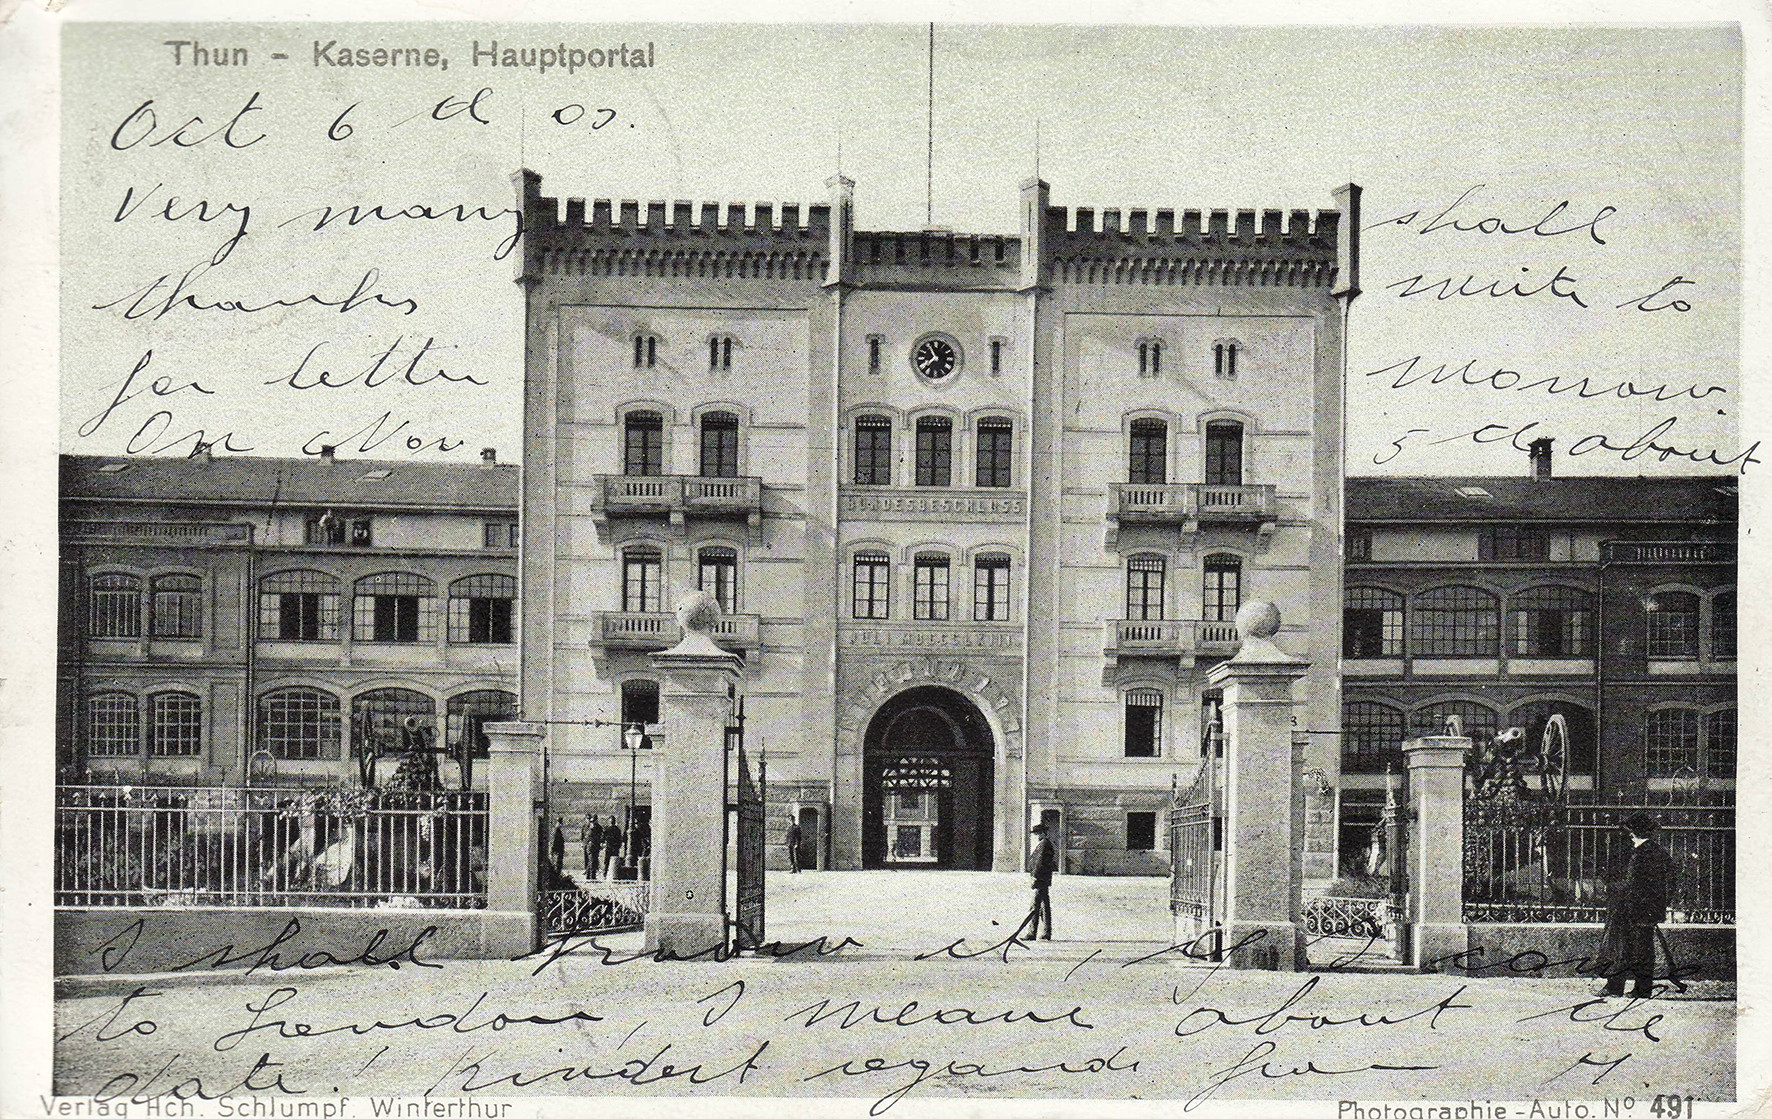 Thun - Kaserne, Hauptportal
Oct 6 d 03.
Very many
thanks
for letter
On Nov.
shall
write to
morrow.
5 d about
BUNDESBESCHLUSS
JULI MDCCCLXIII
I shall know it, if I come
to London, I mean about the
date! Kindest regards from H.
Verlag Hch. Schlumpf, Winterthur
Photographie-Auto. No 491